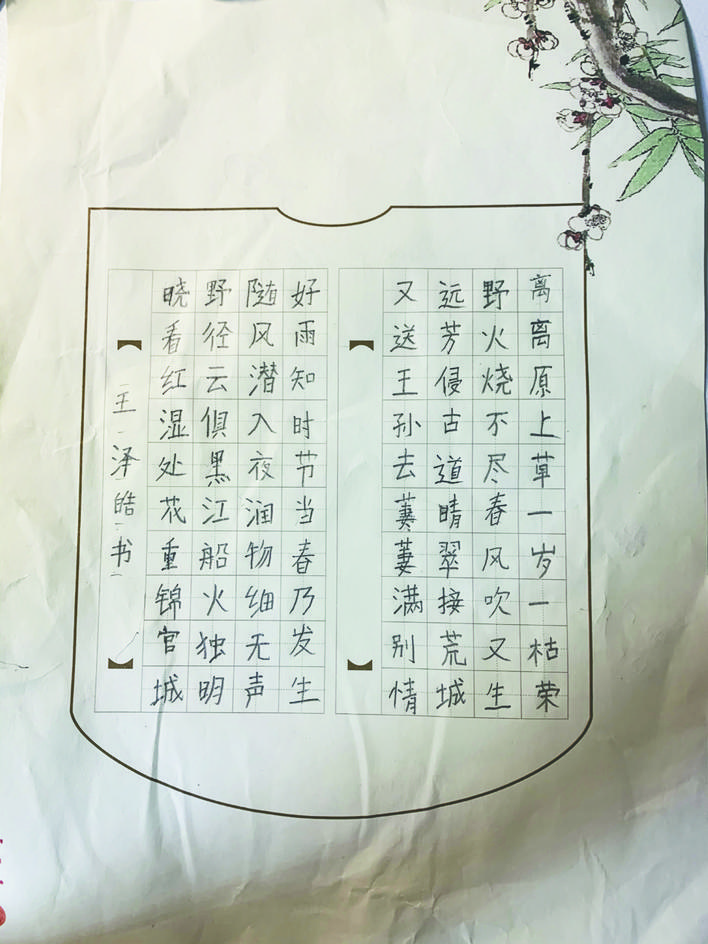 离离原上草一岁一枯荣
野火烧不尽春风吹又生
远芳侵古道晴翠接荒城
又送王孙去萋萋满别情
好雨知时节当春乃发生
随风潜入夜润物细无声
野径云俱黑江船火独明
晓看红湿处花重锦官城
王泽皓书